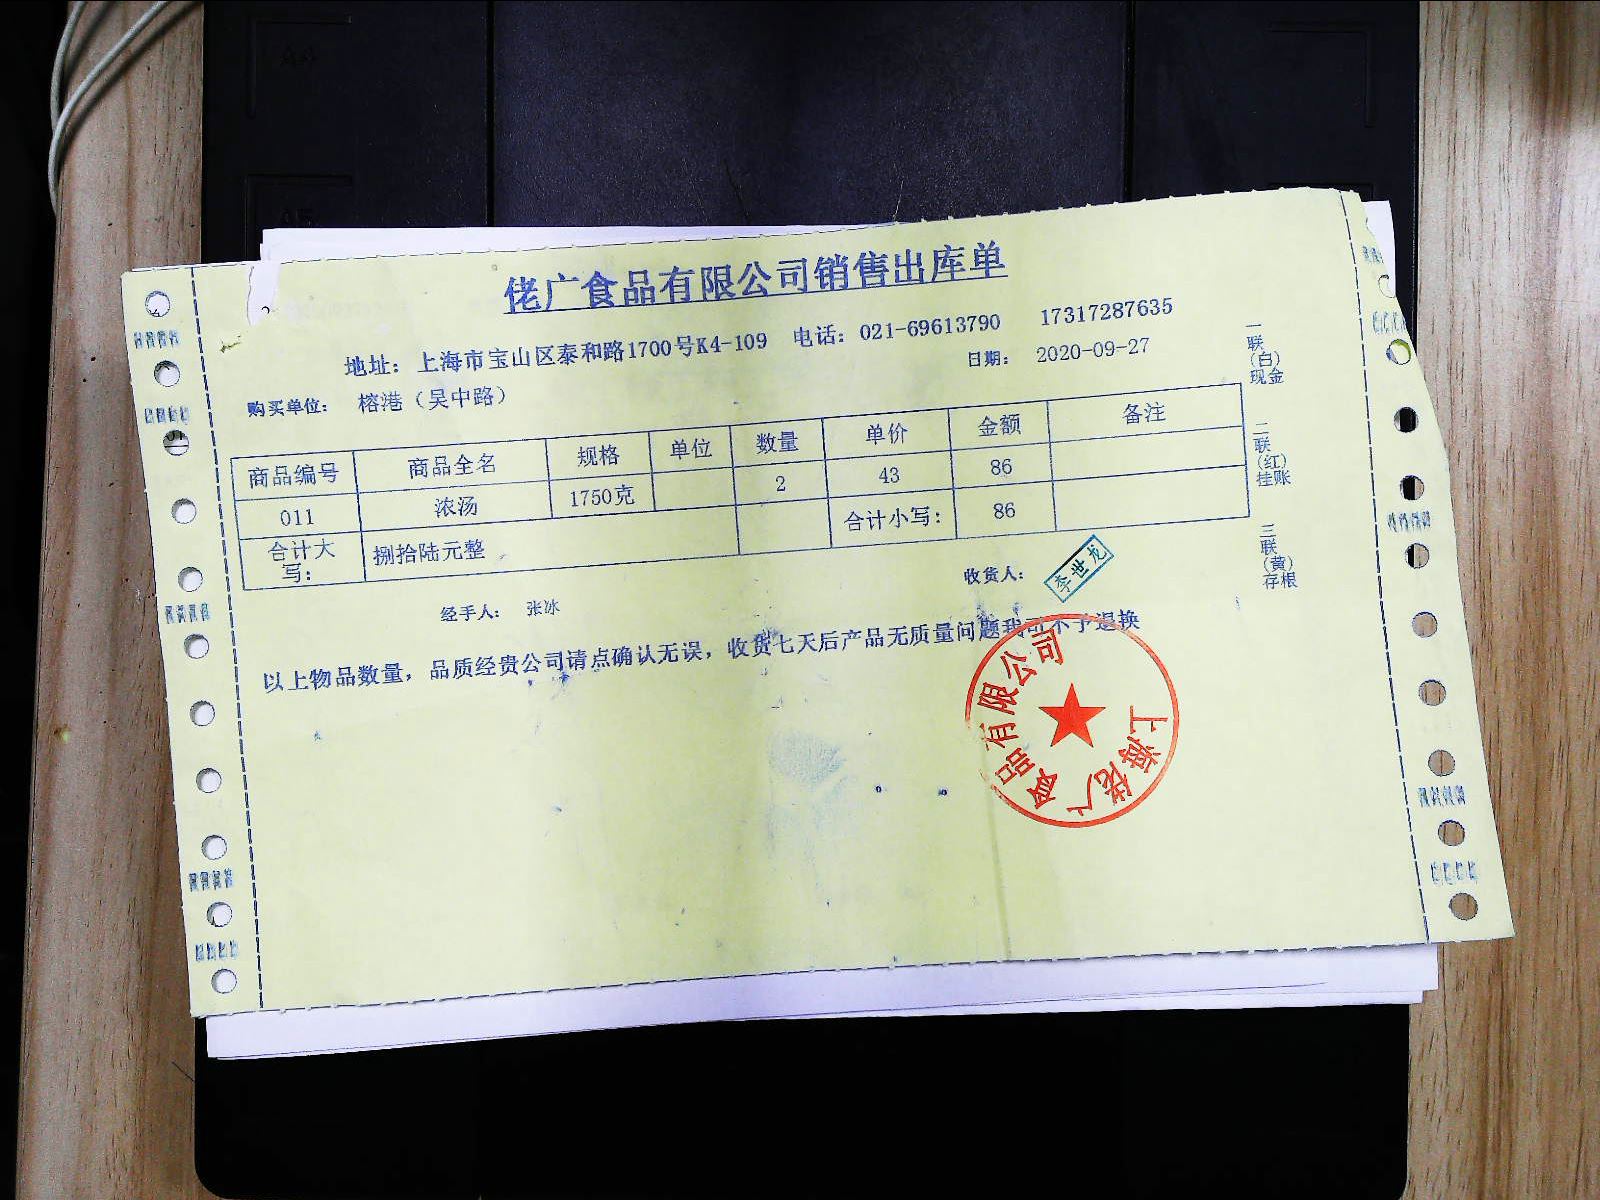 佬广食品有限公司销售出库单
地址：上海市宝山区泰和路1700号K4-109 电话：021-69613790 17317287635
购买单位： 榕港（吴中路） 日期： 2020-09-27
商品编号 商品全名 规格 单位 数量 单价 金额 备注
011 浓汤 1750克 2 43 86
合计大写： 捌拾陆元整 合计小写： 86
经手人： 张冰 收货人： 李世龙
以上物品数量，品质经贵公司请点确认无误，收货七天后产品无质量问题我司不予退换
一联（白）现金
二联（红）挂账
三联（黄）存根
上海佬广食品有限公司
A4
A5